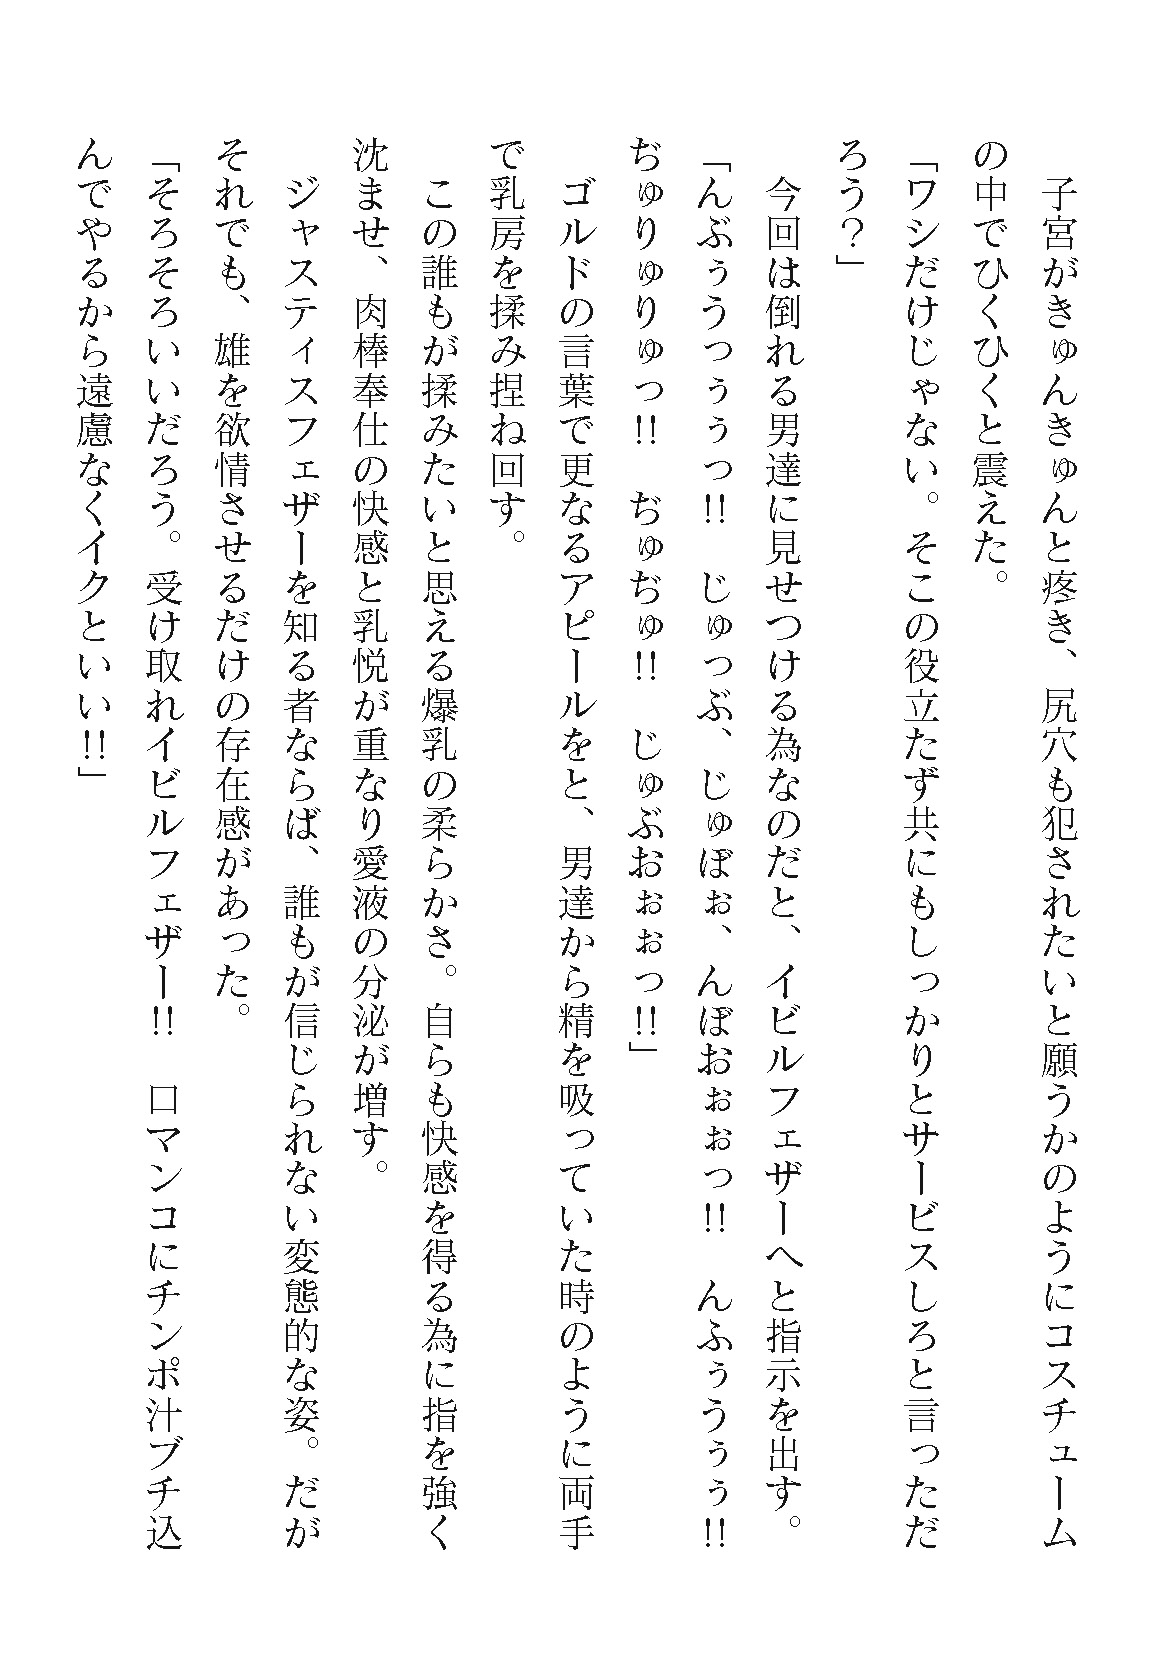 子宮がきゅんきゅんと疼き、尻穴も犯されたいと願うかのようにコスチューム
の中でひくひくと震えた。
「ワシだけじゃない。そこの役立たず共にもしっかりとサービスしろと言っただ
ろう？」
　今回は倒れる男達に見せつける為なのだと、イビルフェザーへと指示を出す。
「んぶぅうっぅぅっ!!　じゅっぶ、じゅぼぉ、んぼおぉぉっ!!　んふぅうぅぅ!!
ぢゅりゅりゅっ!!　ぢゅぢゅ!!　じゅぶおぉぉっ!!」
　ゴルドの言葉で更なるアピールをと、男達から精を吸っていた時のように両手
で乳房を揉み捏ね回す。
　この誰もが揉みたいと思える爆乳の柔らかさ。自らも快感を得る為に指を強く
沈ませ、肉棒奉仕の快感と乳悦が重なり愛液の分泌が増す。
　ジャスティスフェザーを知る者ならば、誰もが信じられない変態的な姿。だが
それでも、雄を欲情させるだけの存在感があった。
「そろそろいいだろう。受け取れイビルフェザー!!　口マンコにチンポ汁ブチ込
んでやるから遠慮なくイクといい!!」